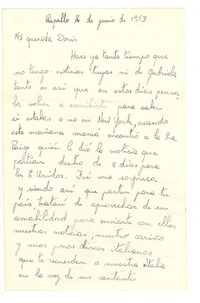 Rapallo 16 de junio de 1953
Mi querida Doris
Hace ya tanto tiempo que
no tengo noticias tuyas ni de Gabriela
tanto es así que en estos días pensa
ba volver a escribirte para saber
si estabas o no en New York, cuando
esta mañana mamá encontró a la Sra
quien le dió la noticia que
partían dentro de 2 días para
los E Unidos. Fué una sorpresa
y siendo así que parten para tu
país, trataré de aprovechar de su
amabilidad para enviarte con ellos
nuestras noticias, nuestro cariño
y unos pocos discos italianos
que te recuerden a nuestra Italia
en la voz de sus cantantes